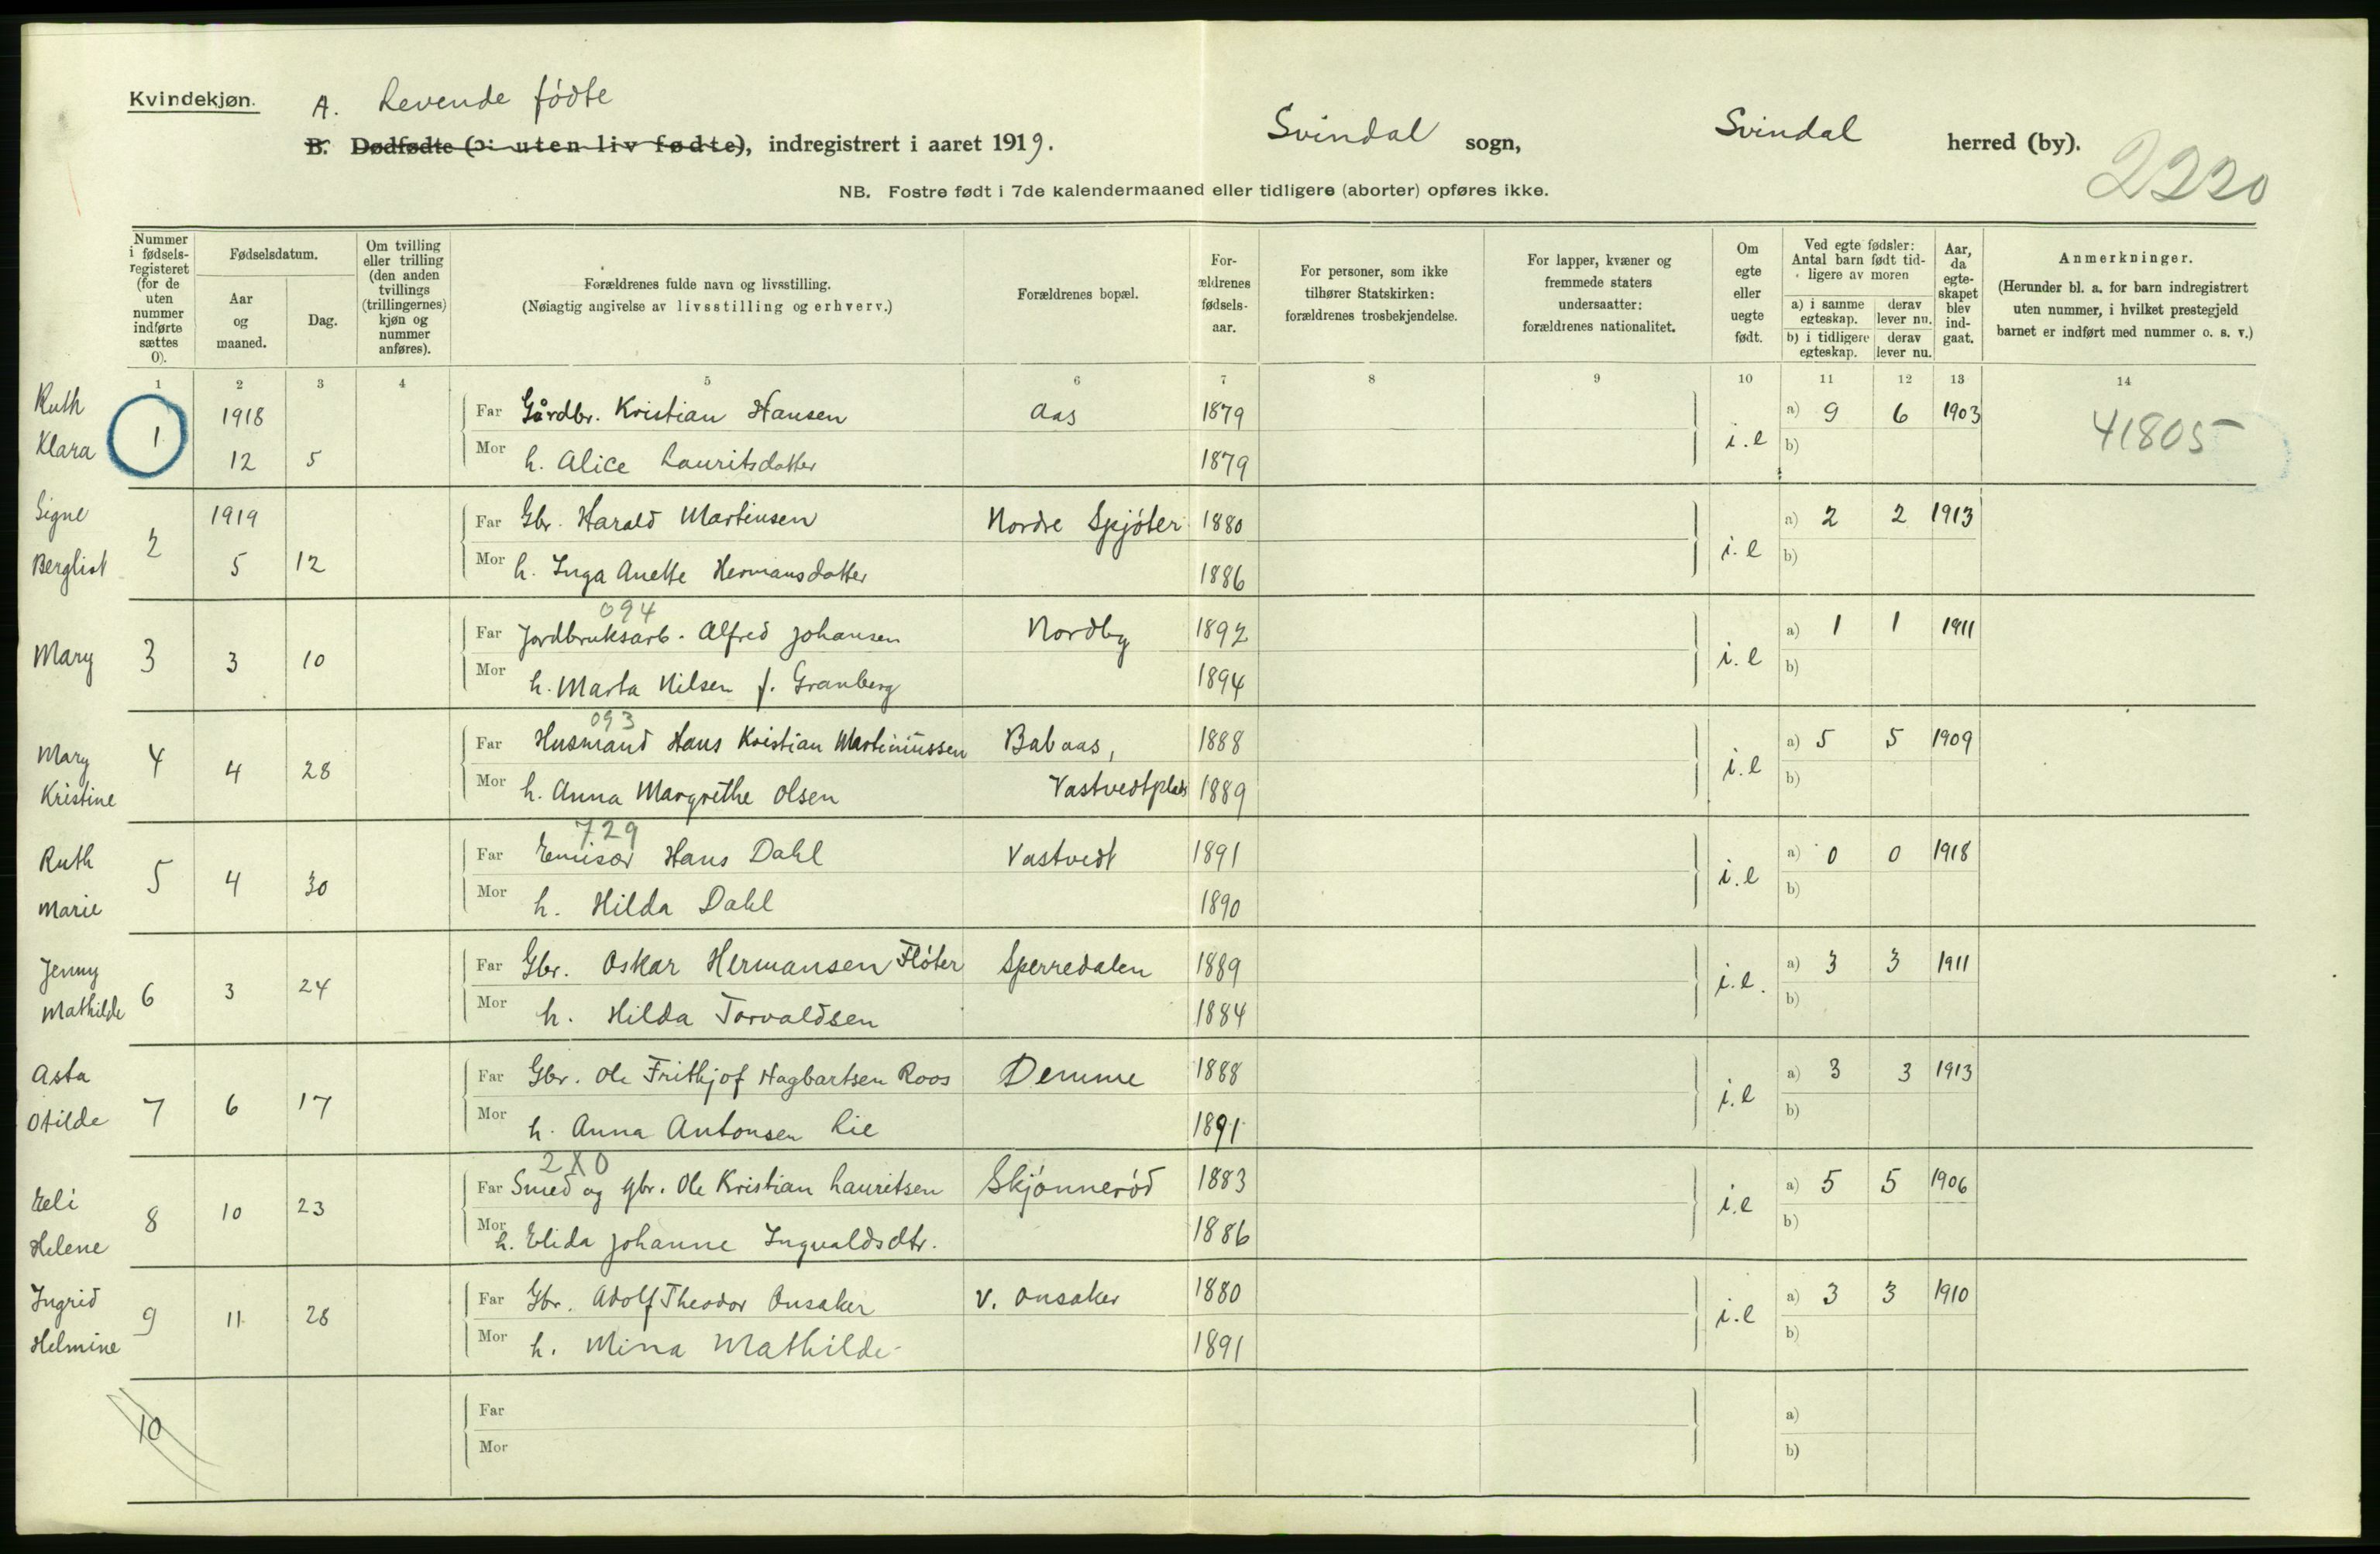 Kvindekjøn.
A. Levende fødte
B. Dødfødte (ɔ: uten liv fødte), indregistrert i aaret 1919.
Svindal sogn, Svindal herred (by).
2220
NB. Fostre født i 7de kalendermaaned eller tidligere (aborter) opføres ikke.
Nummer i fødsels-registeret (for de uten nummer indførte sættes 0).
Fødselsdatum.
Aar og maaned.
Dag.
Om tvilling eller trilling (den anden tvillings (trillingernes) kjøn og nummer anføres).
Forældrenes fulde navn og livsstilling.
(Nøiagtig angivelse av livsstilling og erhverv.)
Forældrenes bopæl.
For-ældrenes fødsels-aar.
For personer, som ikke tilhører Statskirken: forældrenes trosbekjendelse.
For lapper, kvæner og fremmede staters undersaatter: forældrenes nationalitet.
Om egte eller uegte født.
Ved egte fødsler: Antal barn født tid-ligere av moren
a) i samme egteskap. derav lever nu.
b) i tidligere egteskap. derav lever nu.
Aar, da egte-skapet blev ind-gaat.
Anmerkninger.
(Herunder bl. a. for barn indregistrert uten nummer, i hvilket prestegjeld barnet er indført med nummer o. s. v.)
1 2 3 4 5 6 7 8 9 10 11 12 13 14
Ruth 1918 Far Gårdbr. Kristian Hansen Aas 1879 a) 9 6 1903
Klara 1 12 5 Mor h. Alice Lauritsdatter 1879 i.e b) 41805
Signe 1919 Far Gbr. Harald Martinsen Nordre Spjöter 1880 a) 2 2 1913
Bergliot 2 5 12 Mor h. Inga Anette Hermansdatter 1886 i.e b)
094
Far Jordbruksarb. Alfred Johansen Nordby 1892 a) 1 1 1911
Mary 3 3 10 Mor h. Marta Nilsen f. Granberg 1894 i.e b)
093
Mary 4 4 28 Far Husmand Hans Kristian Martiniussen Babaas, 1888 a) 5 5 1909
Kristine Mor h. Anna Margrethe Olsen Vastvedtplads 1889 i.e b)
729
Ruth 5 4 30 Far Hans Dahl Vastvedt 1891 a) 0 0 1918
Marie Mor h. Hilda Dahl 1890 i.e b)
Jenny 6 3 24 Far Gbr. Oskar Hermansen Flöter Sperredalen 1889 a) 3 3 1911
Mathilde Mor h. Hilda Torvaldsen 1884 i.e. b)
Asta 7 6 17 Far Gbr. Ole Frithjof Hagbartsen Roos Demme 1888 a) 3 3 1913
Otilde Mor h. Anna Antonsen Lie 1891 i.e b)
2X0
Eli 8 10 23 Far Smed og gbr. Ole Kristian Lauritsen Skjönneröd 1883 a) 5 5 1906
Helene Mor h. Elida Johanne Ingvaldsdtr. 1886 i.e b)
Ingrid 9 11 28 Far Gbr. Adolf Theodor Onsaker V. Onsaker 1880 a) 3 3 1910
Helmine Mor h. Mina Mathilde 1891 i.e b)
10 Far a)
Mor b)